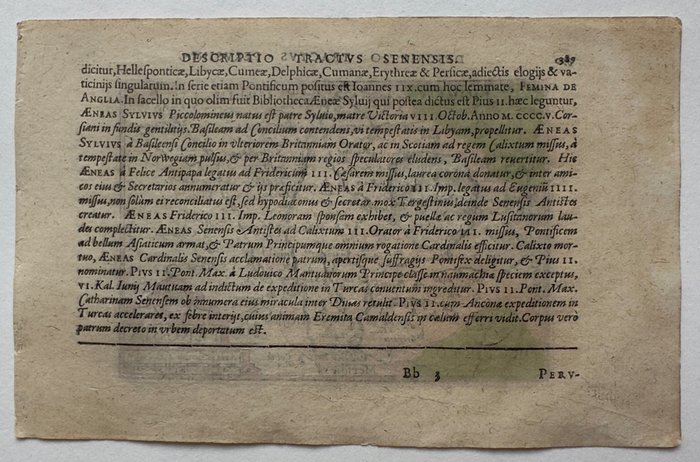 DESCRIPTIO TRACTVS SENENSIS. 389
dicitur, Hellesponticæ, Libycæ, Cumeæ, Delphicæ, Cumanæ, Erythreæ & Persicæ, adiectis elogijs & va-
ticinijs singularum. In serie etiam Pontificum positus est Ioannes IIX. cum hoc lemmate, FEMINA DE
ANGLIA. In sacello in quo olim fuit Bibliotheca Æneæ Syluij qui postea dictus est Pius II. hæc leguntur,
ÆNEAS SYLVIVS Piccolomineus natus est patre Syluio, matre Victoria VIII. Octob. Anno M. CCCC.V. Cor-
siani in fundis gentilitijs. Basileam ad Concilium contendens, vi tempestatis in Libyam, propellitur. ÆNEAS
SYLVIVS à Basileensi Concilio in vlteriorem Britanniam Orator, ac in Scotiam ad regem Calixtum missus, à
tempestate in Norwegiam pulsus, & per Britanniam regios speculatores eludens, Basileam reuertitur. Hic
ÆNEAS à Felice Antipapa legatus ad Fridericum III. Cæsarem missus, laurea corona donatur, & inter ami-
cos eius & Secretarios annumeratur & ijs præficitur. ÆNEAS à Friderico III. Imp. legatus ad Eugeniū IIII.
missus, non solùm ei reconciliatus est, sed hypodiaconus & secretar. mox Tergestinus, deinde Senensis Antistes
creatur. ÆNEAS Friderico III. Imp. Leonoram sponsem exhibet, & puellæ ac regum Lusitanorum lau-
des complectitur. ÆNEAS Senensis Antistes ad Calixtum III. Orator à Friderico III. missus, Pontificem
ad bellum Asiaticum armat, & Patrum Principumque omnium rogatione Cardinalis efficitur. Calixto mor-
tuo, ÆNEAS Cardinalis Senensis acclamatione patrum, apertisque suffragijs Pontifex deligitur, & Pius II.
nominatur. PIVS II. Pont. Max. à Ludouico Mantuanorum Principe classe in naumachiæ speciem exceptus,
VI. Kal. Iunij Mantuam ad indictum de expeditione in Turcas conuentum ingreditur. PIVS II. Pont. Max.
Catharinam Senensem ob innumera eius miracula inter Diuas retulit. PIVS II. cum Anconæ expeditionem in
Turcas acceleraret, ex febre interijt, cuius animam Eremita Camaldensis in cælum efferri vidit. Corpus verò
patrum decreto in vrbem deportatum est.
Bb 3 PERV-